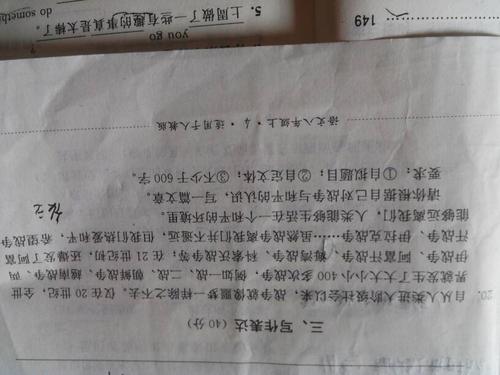 三、写作表达(40分)
20. 自从人类进入阶级社会以来,战争就像噩梦一样除之不去。仅在20世纪,全世
界就发生了大大小小400多次战争,例如一战、二战、朝鲜战争、越南战争、两
伊战争、阿富汗战争、海湾战争、科索沃战争等;在21世纪初,还爆发了阿富
汗战争、伊拉克战争……虽然战争离我们并不遥远,但我们热爱和平,希望战争
能够远离我们,人类能够生活在一个和平的环境里。
请你根据自己对战争与和平的认识,写一篇文章。
要求:①自拟题目;②自定文体;③不少于600字。
语文八年级上·4·适用于人教版
you go
5. 上周做了一些有趣的事真是太棒了。
do someth
149